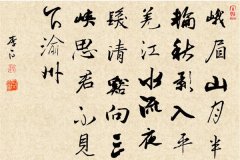 峨眉山月半
輪秋影入平
羌江水流夜
發清谿向三
峽思君不見
下渝州
李白